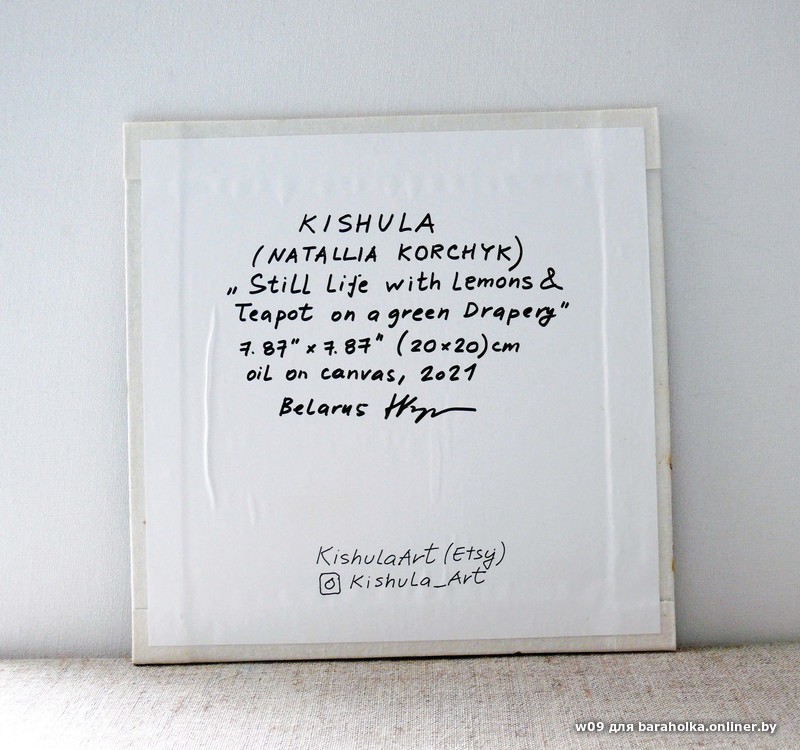 KISHULA
(NATALLIA KORCHYK)
„Still Life with Lemons &
Teapot on a green Drapery"
7.87" x 7.87" (20x20)cm
oil on canvas, 2021
Belarus
KishulaArt (Etsy)
Kishula_Art
w09 для baraholka.onliner.by